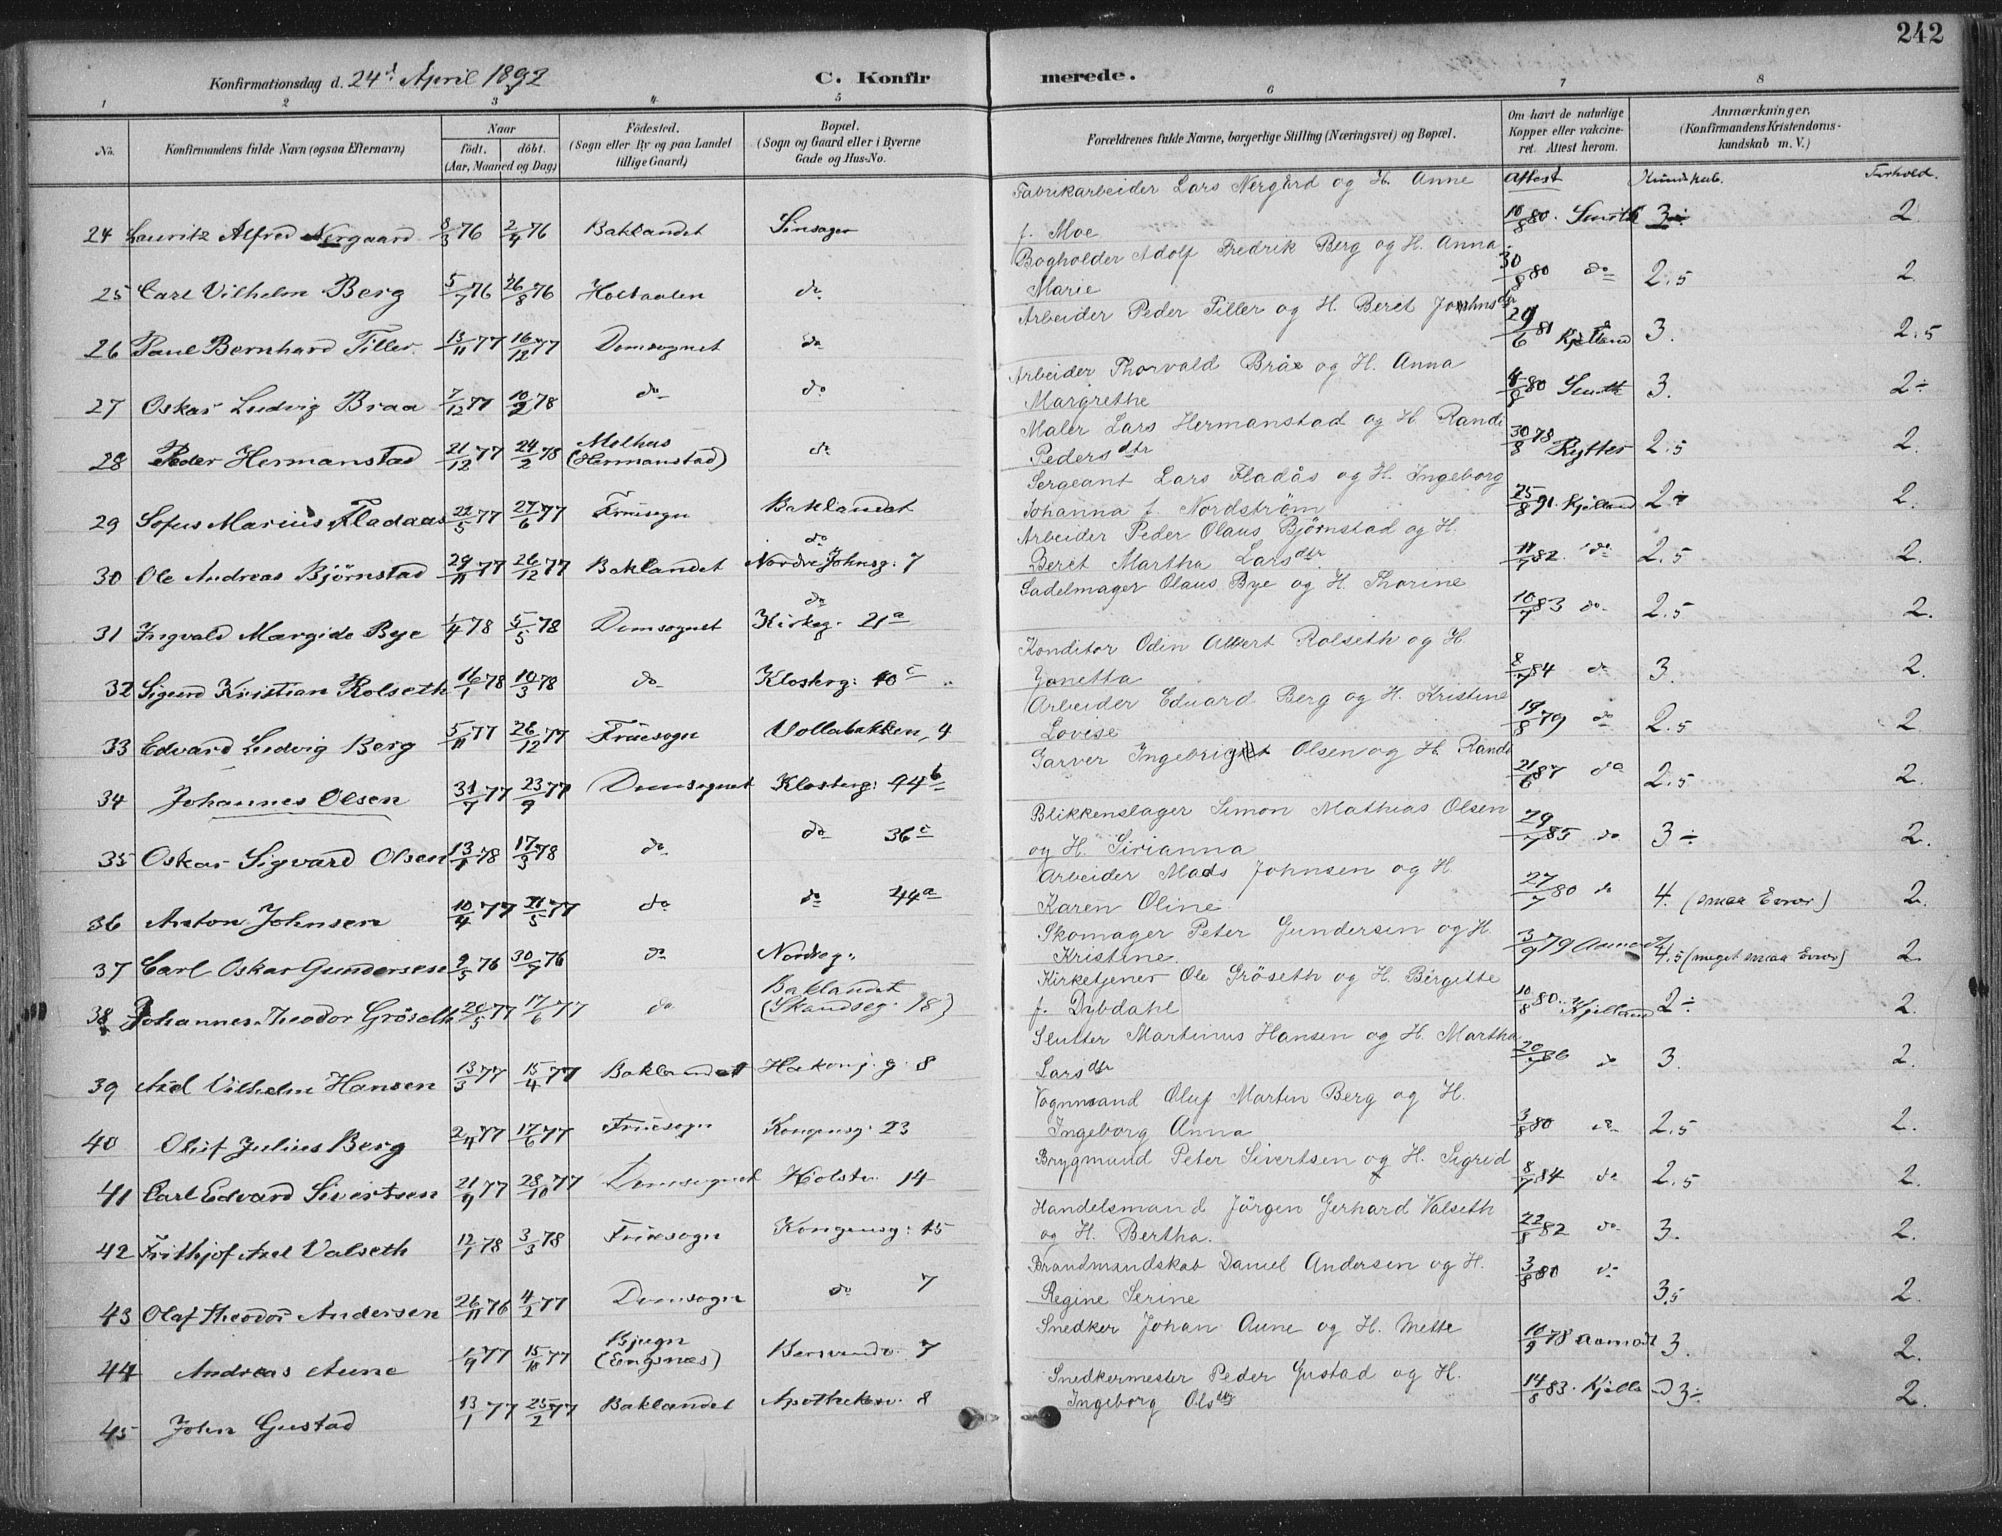 242
Konfirmationsdag d. 24d April 1892 C. Konfirmerede.
1 2 3 4 5 6 7 8
No. Konfirmandens fulde Navn (ogsaa Efternavn) Naar født. døbt. (Aar, Maaned og Dag) Fødested. (Sogn eller By og paa Landet tillige Gaard) Bopæl. (Sogn og Gaard eller i Byerne Gade og Hus-No. Forældrenes fulde Navne, borgerlige Stilling (Næringsvei) og Bopæl. Om havt de naturlige Kopper eller vakcineret. Attest herom. Anmærkninger. (Konfirmandens Kristendomskundskab m. V.)
Attest Kundskab. Forhold.
24 Lauritz Alfred Nergaard 8/3 76 2/4 76 Baklandet Sinsager Fabrikarbeider Lars Nergård og H. Anne f. Moe 10/8 80. Smith 3÷ 2
25 Carl Vilhelm Berg 5/7 76 26/8 76 Holtaalen do Bogholder Adolf Fredrik Berg og H. Anna Marie 30/8 80 do 2.5 2
26 Paul Bernhard Tiller 13/11 77 16/12 77 Domsognet do Arbeider Peder Tiller og H. Beret Johnsda 29/6 81 Kjelland 3. 2.5
27 Oskar Ludvig Braa 7/12 77 10/2 78 do do Arbeider Thorvald Bråe og H. Anna Margrethe 80 Smith 3. 2÷
28 Peder Hermanstad 21/12 77 24/2 78 Melhus (Hermanstad) do Maler Lars Hermanstad og H. Randi Pedersdtr 30/8 78 Rytter 2.5 2.
29 Sofus Marius Fladaas 22/5 77 27/6 77 Fruesogn Baklandet Sergeant Lars Fladås og H. Ingeborg Johanna f. Nordström 25/8 91 Kjelland 2÷ 2.
30 Ole Andreas Bjørnstad 29/11 77 26/12 77 Baklandet do Nordre Johnsg: 7 Arbeider Peder Olaus Bjørnstad og H. Beret Martha Larsdtr. 11/7 82. do 2.5 2.
31 Ingvald Margido Bye 1/4 78 5/5 78 Domsognet do Kirkeg. 21a Sadelmager Olaus Bye og H. Thorine 10/7 83 do 2.5 2.
32 Sigurd Kristian Rolseth 16/1 78 10/3 78 do Klosterg: 40c Konditor Odin Albert Rolseth og H. Janetta 8/7 84 do 3. 2.
33 Edvard Ludvig Berg 5/11 77 26/12 77 Fruesogn Vollabakken, 4 Arbeider Eduard Berg og H. Kristine Lovise 19/8 79 do 2.5 2
34 Johannes Olsen 31/7 77 23/9 77 Domsognet Klosterg: 94b Garver Ingebrigt Olsen og H. Randi 21/6 87 do 2.5 2.
35 Oskar Sigvard Olsen 13/1 78 17/3 78 do do 36c Blikkenslager Simon Mathias Olsen og H. Sirianna 29/7 85 do 3÷ 2.
36 Anton Johnsen 10/4 77 21/5 77 do do 44a Arbeider Mads Johnsen og H. Karen Oline 27/7 80 do 4. (smaa Evner) 2.
37 Carl Oskar Gundersen 9/5 76 30/7 76 do Nordreg. Skomager Peter Gundersen og H. Kristine. 3/9 79 Aamodt 4.5 (meget smaa Evner) 2.
38 Johannes Theodor Gröseth 20/5 77 17/6 77 do Baklandet (Skandseg. 18) Kirketjener Ole Gröseth og H. Birgitte f. Dybdahl 10/8 80. Kjelland 2÷ 2.
39 Axel Vilhelm Hansen 13/3 77 15/4 77 Baklandet Hakonj. g. 8 Slutter Martinus Hansen og H. Martha Larsdtr 20/7 86 do 3. 2.
40 Oluf Julius Berg 2/4 77 17/6 77 Fruesogn Kongensg. 23 Vognmand Oluf Martin Berg og H. Ingeborg Anna 3/8 80 do 2.5 2.
41 Carl Edvard Sivertsen 21/9 77 28/10 77 Domsognet Holstv. 14 Brygmand Peter Sivertsen og H. Sigrid 8/7 84 do 2.5 2.
42 Frithjof Axel Valseth 12/1 78 3/3 78 Fruesogn Kongensg: 15 Handelsmand Jörgen Gerhard Valseth og H. Bertha. 22/8 82 do 3. 2.
43 Olaf Theodor Andersen 26/11 76 4/2 77 Domsogn do 7 Brandmandskab Daniel Andersen og H. Regine Serine 3/8 80 do 3.5 2.
44 Andreas Aune 1/9 77 15/11 77 Bjugn (Engsnæs) Bersvendv. 7 Snedker Johan Aune og H. Mette 10/9 78 Aamodt 3. 2.
45 John Gustad 13/1 77 25/2 77 Baklandet Apothekerv. 8 Snedkermester Peder Gustad og H. Ingeborg Olsdtr 14/8 83. Kjelland 3÷ 2.